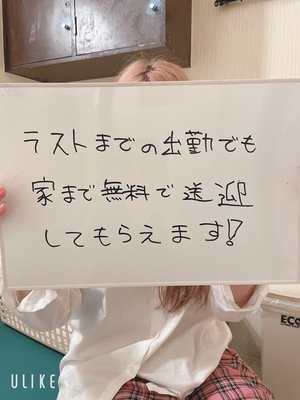 ラストまでの出勤でも
家まで無料で送迎
してもらえます!?
ECO
ULIKE